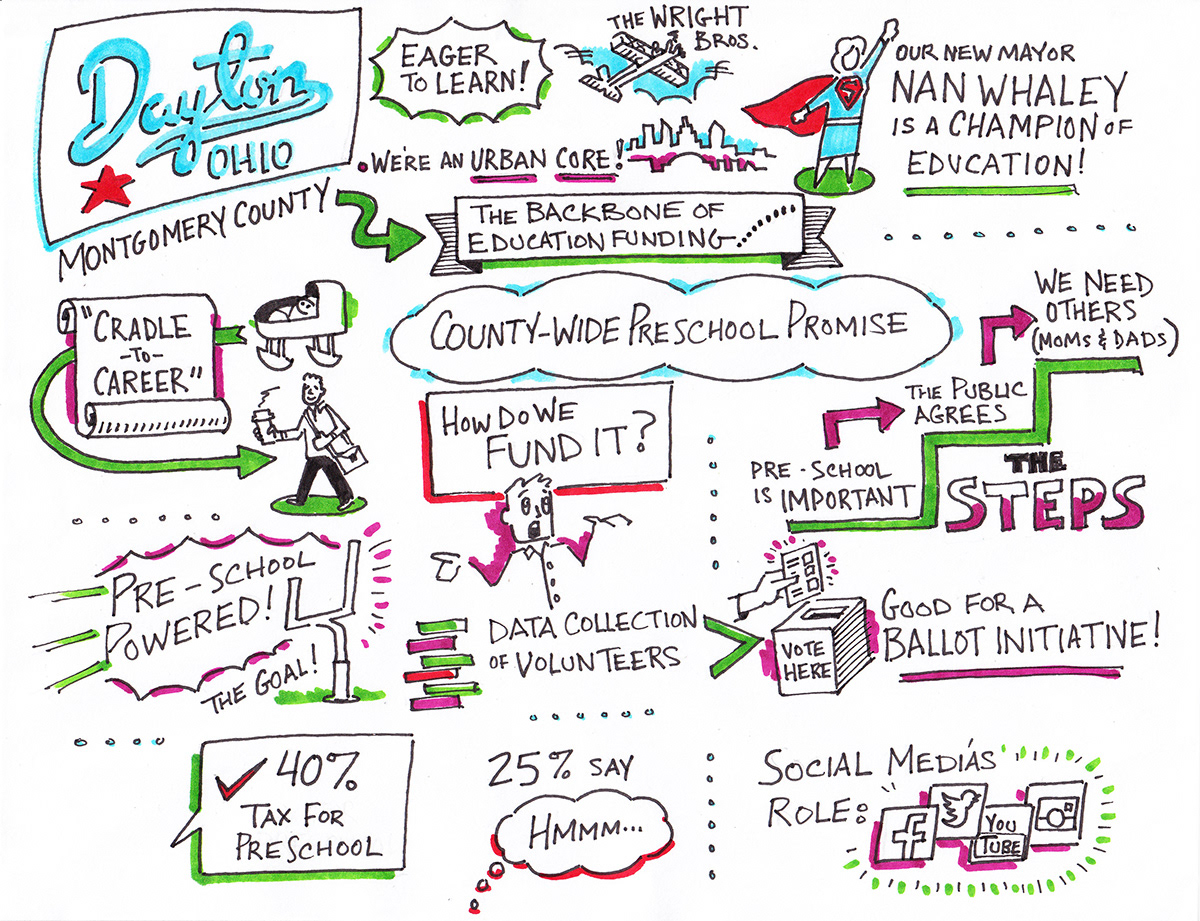 Dayton
OHIO
MONTGOMERY COUNTY
EAGER
TO LEARN!
THE WRIGHT
BROS.
• WE'RE AN URBAN CORE!
OUR NEW MAYOR
NAN WHALEY
IS A CHAMPION OF
EDUCATION!
S
THE BACKBONE OF
EDUCATION FUNDING
"CRADLE
-TO-
CAREER"
COUNTY-WIDE PRESCHOOL PROMISE
HOW DO WE
FUND IT?
WE NEED
OTHERS
(MOMS & DADS)
THE PUBLIC
AGREES
PRE-SCHOOL
IS IMPORTANT
THE
STEPS
PRE-SCHOOL
POWERED!
THE GOAL!
DATA COLLECTION
OF VOLUNTEERS
VOTE
HERE
GOOD FOR A
BALLOT INITIATIVE!
40%
TAX FOR
PRESCHOOL
25% SAY
HMMM...
SOCIAL MEDIA'S
ROLE:
f
YOU
TUBE